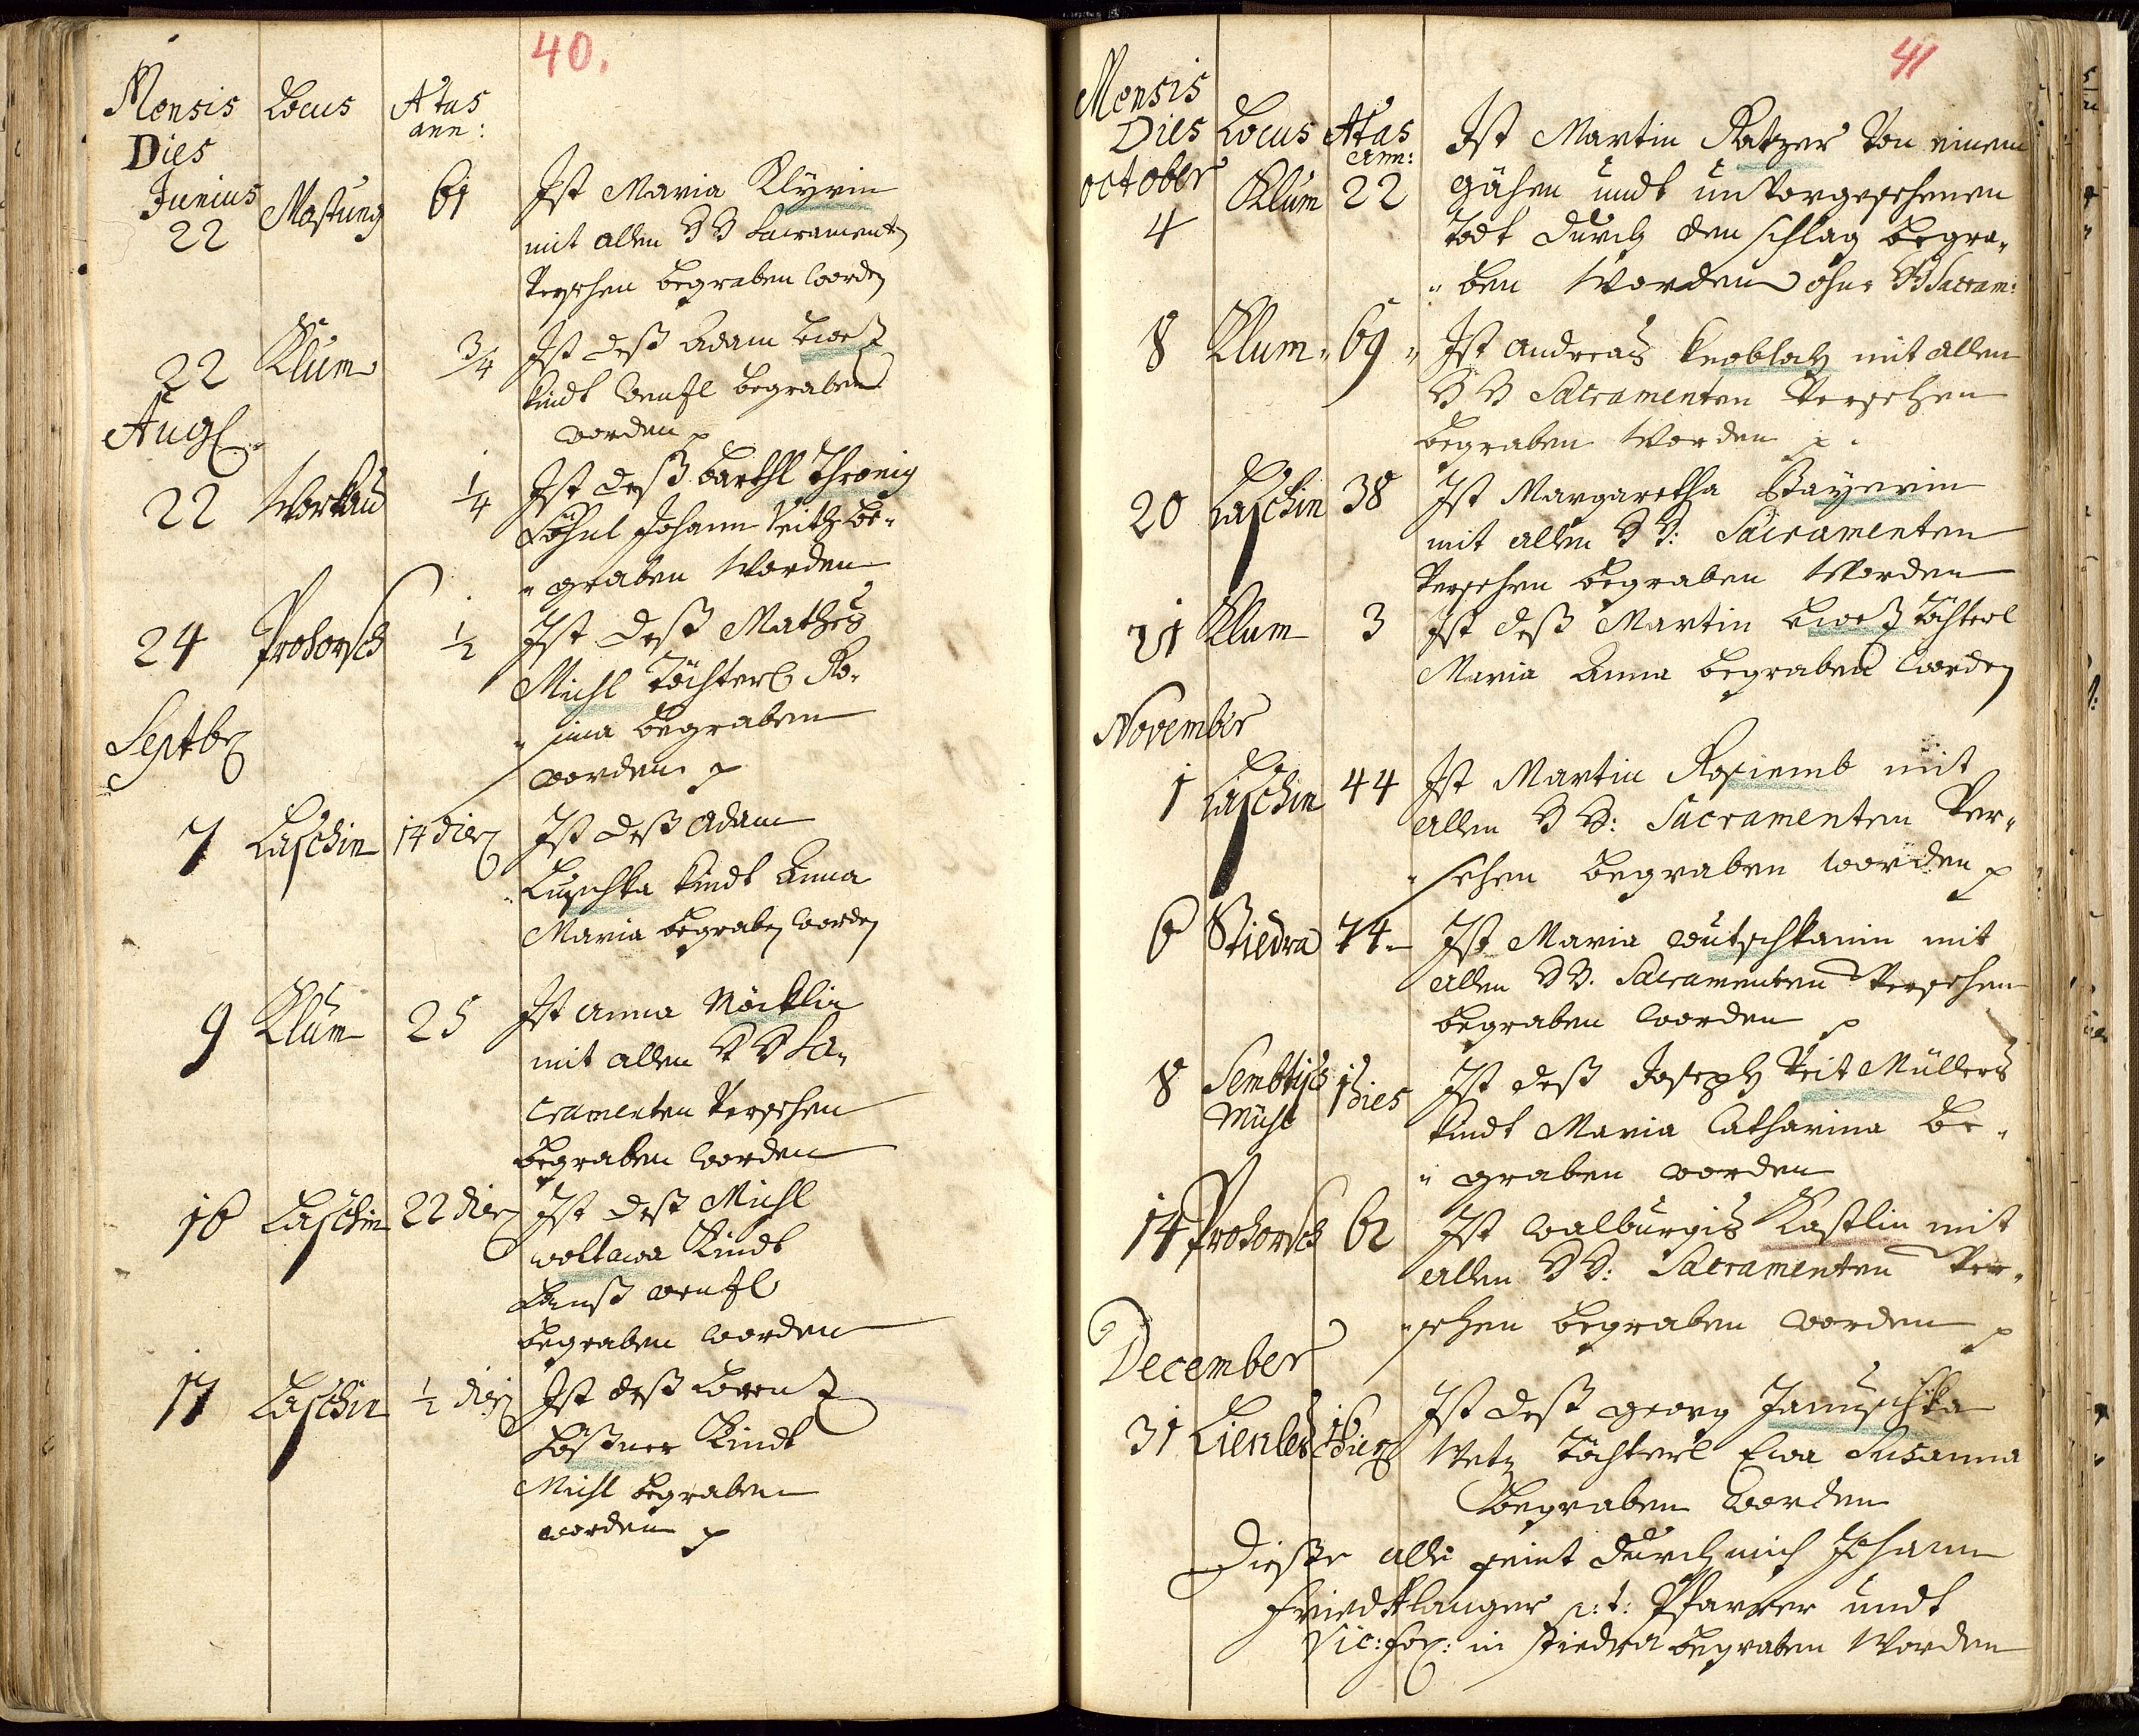 40.
Mensis Locus Ætas
ann:
Dies
Junius
22 Mostung 61 Ist Maria Klyrin
mit allen HH Sacramenten
versehen begraben worden
22 Klum 3/4 Ist deß Adam
kindt Wentzl begraben
worden
Aug
22 Workau 1/4 Ist deß Barthl Thronig
Söhnl Johann Veith be-
graben worden
24 Prohorsch 1/2 Ist deß Mathes
Michl Töchterl Ro-
sina begraben
worden
Septbr
7 Laschin 14 dier Ist deß Adam
Luschka kindt Anna
Maria begraben worden
9 Klum 25 Ist Anna Möcklin
mit allen HH Sa-
cramenten versehen
begraben worden
16 Laschin 22 dier Ist deß Michl
woltawa Kindt
Hanß Wentzl
begraben worden
17 Laschin 1/2 dier Ist deß Lorentz
Hößner Kindt
Michl begraben
worden
41
Mensis
Dies Locus Ætas
Ann:
Ist Martin Ratzer von einem
october
4 Klum 22 gähen undt unvorgesehenen
Todt durch den schlag begra-
ben worden ohne HH Sacram:
8 Klum 69 Ist Andreas knobloch mit allen
HH Sacramenten versehen
begraben worden
20 Laschin 38 Ist Margaretha Bayerin
mit allen HH: Sacramenten
versehen begraben worden
21 Klum 3 Ist deß Martin Töchterl
Maria Anna begraben worden
November
1 Laschin 44 Ist Martin Rosiemb mit
allen HH: Sacramenten ver-
sehen begraben worden
6 Stiedra 74 Ist Maria Wutschkanin mit
allen HH. Sacramenten versehen
begraben worden
8 Sembtisch Mühl 1 dies Ist deß Joseph Veit Müllers
kindt Maria Catharina be-
graben worden
14 Prohorsch 62 Ist Walburgis Kastlin mit
allen HH: Sacramenten ver-
sehen begraben worden
December
31 Lienles 16 dier Ist deß georg Januschka
Metz Töchterl Ewa Susanna
begraben worden
Dieße alle seint durch mich Johann
Friedt Klanger p: t: Pfarrer undt
Vic: For: in Stiedra begraben worden